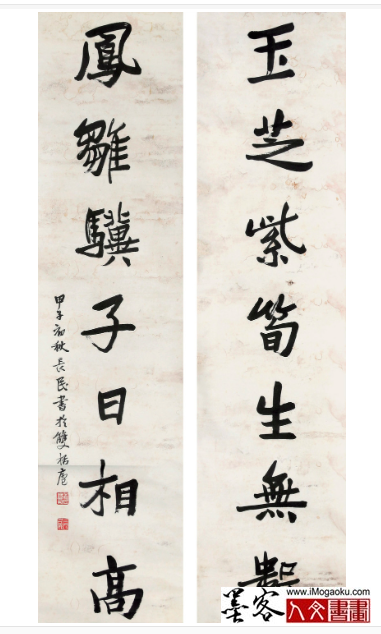 玉芝紫筍生無
鳳雛驥子日相高
甲子初秋長民書於雙栝廬
www.iMogaoku.com
墨客
人文書畫